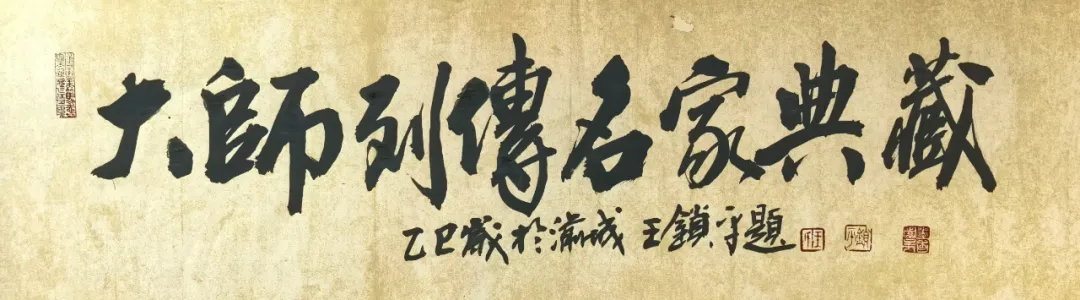 大師列傳名家典藏
乙巳歲於渝城 王鎖平題